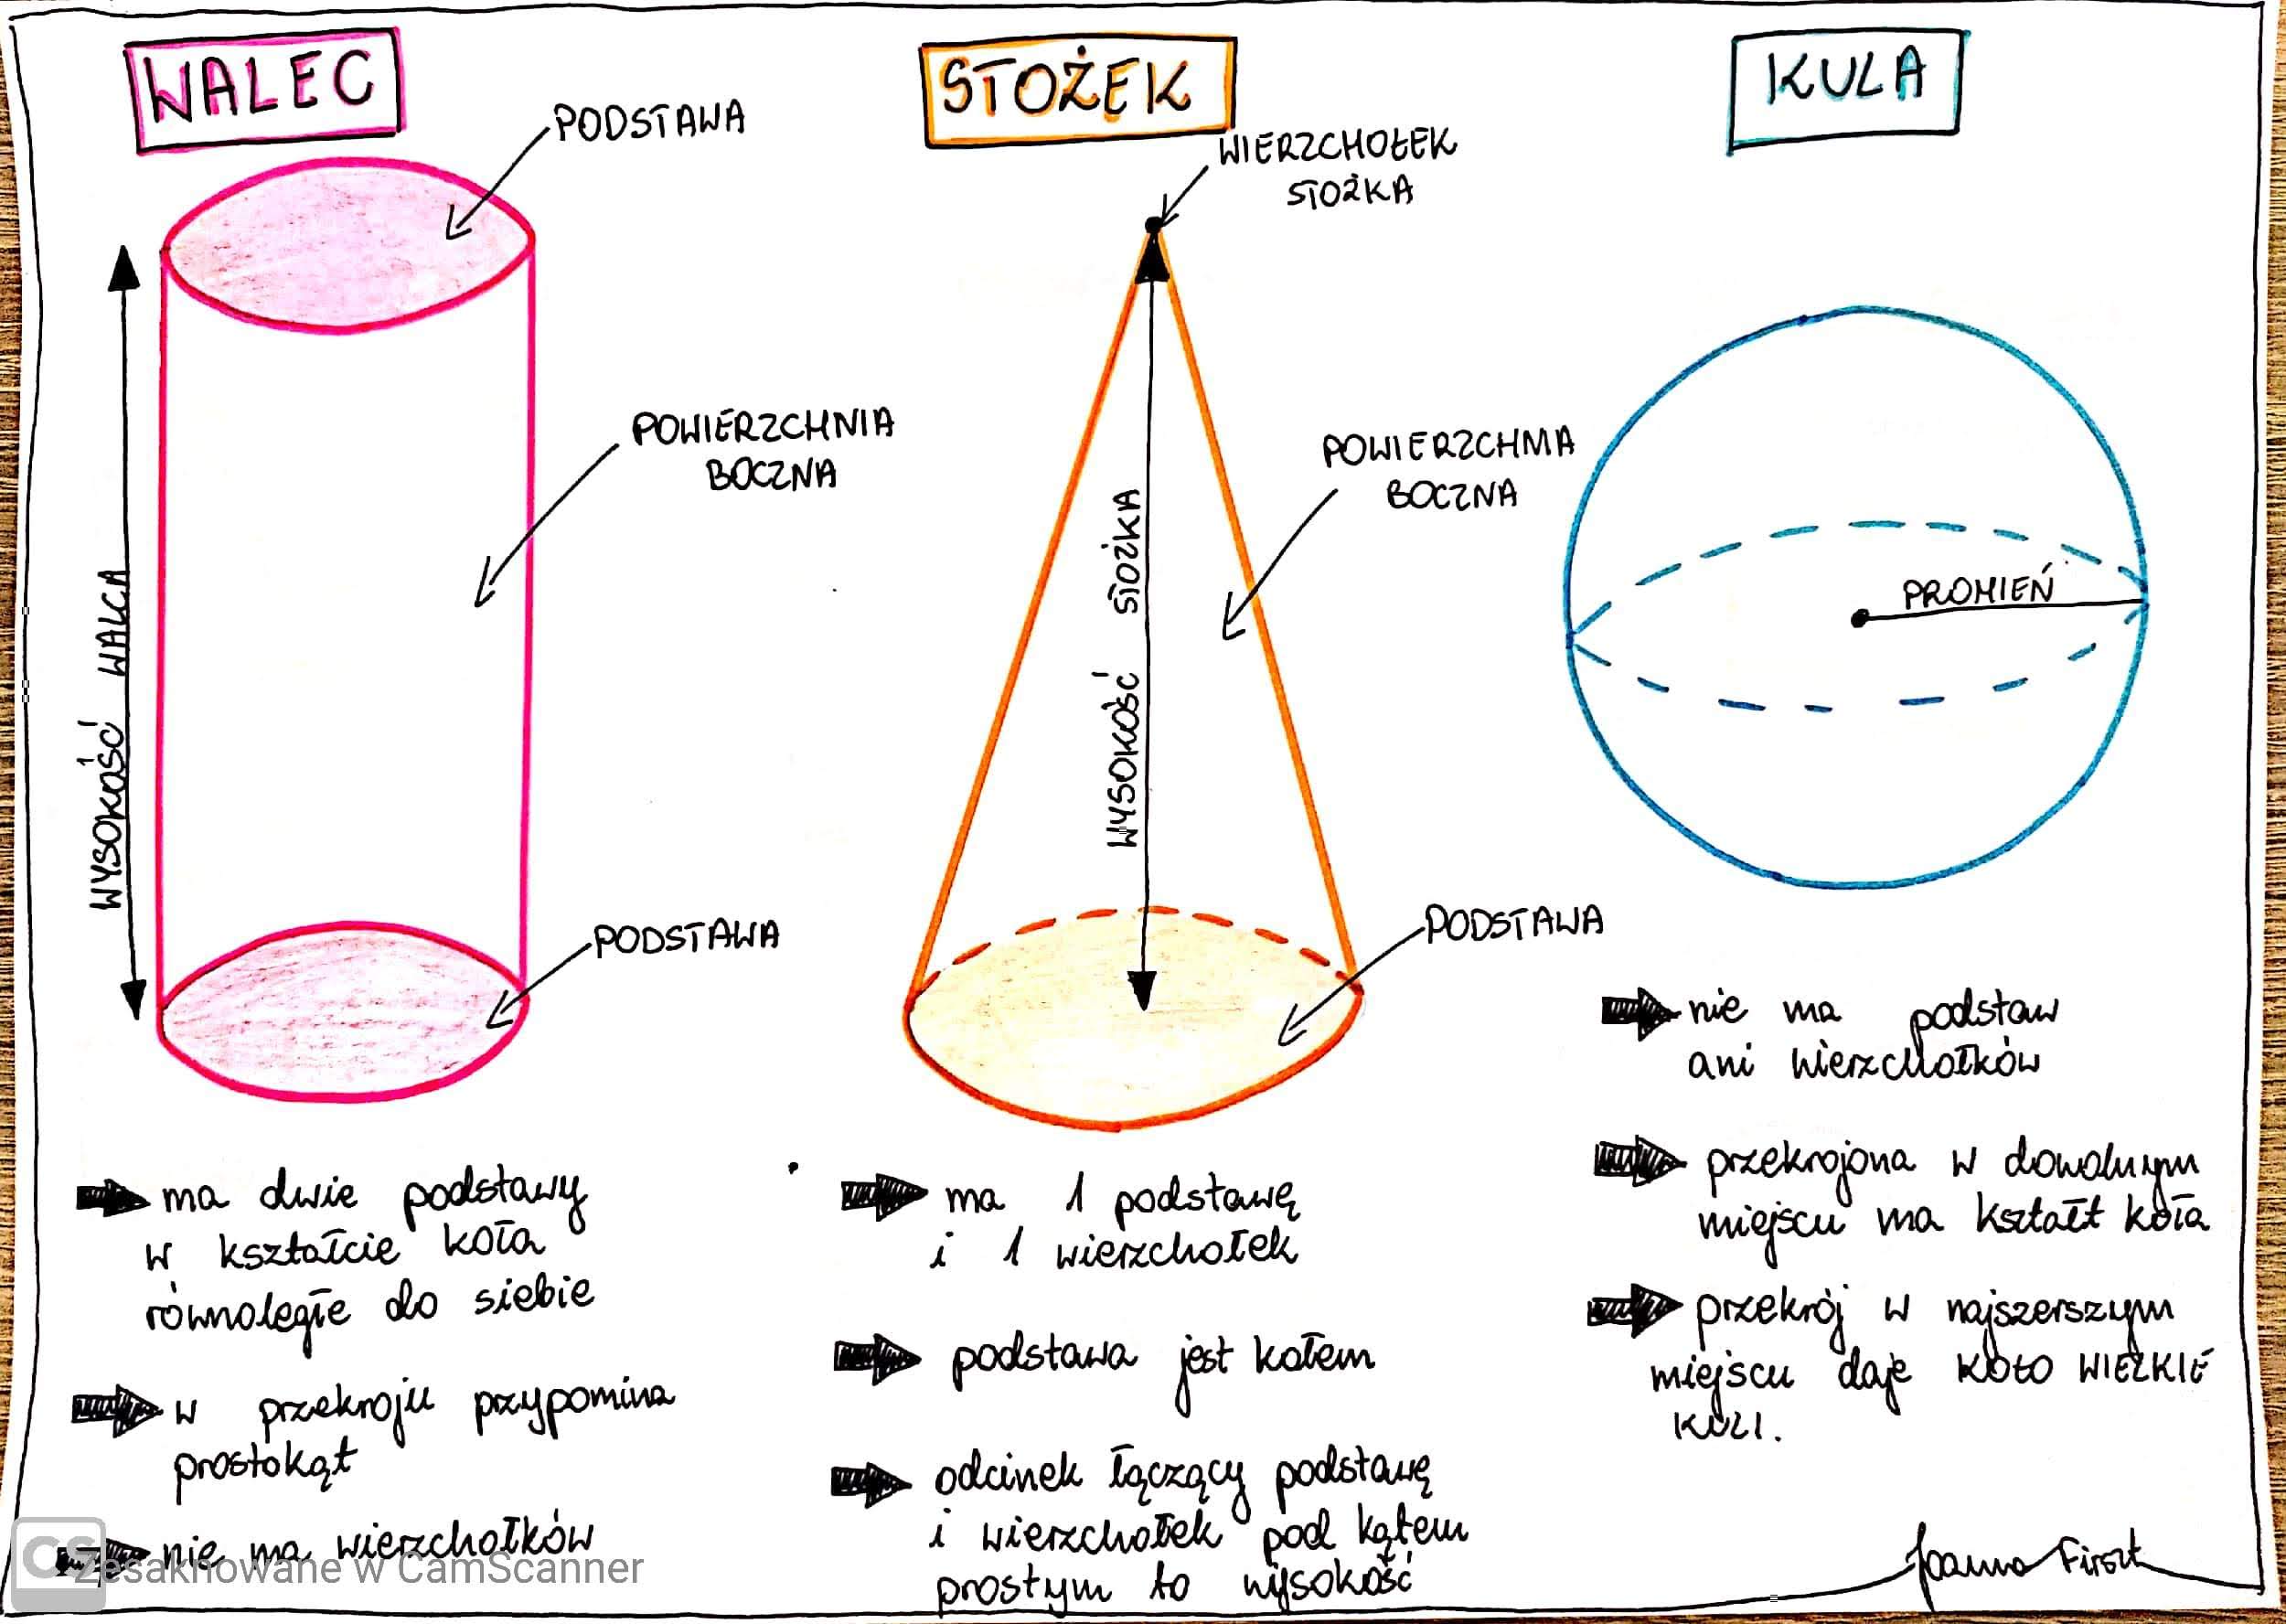 WALEC
PODSTAWA
POWIERZCHNIA
BOCZNA
WYSOKOŚĆ WALCA
PODSTAWA
ma dwie podstawy
w kształcie koła
równoległe do siebie
w przekroju przypomina
prostokąt
nie ma wierzchołków
STOŻEK
WIERZCHOŁEK
STOŻKA
POWIERZCHNIA
BOCZNA
WYSOKOŚĆ STOŻKA
PODSTAWA
ma 1 podstawę
i 1 wierzchołek
podstawa jest kołem
odcinek łączący podstawę
i wierzchołek pod kątem
prostym to wysokość
KULA
PROMIEŃ
nie ma podstaw
ani wierzchołków
przekrojona w dowolnym
miejscu ma kształt koła
przekrój w najszerszym
miejscu daje KOŁO WIELKIE
KULI.
Joanna Firszt
CS Zeskanowane w CamScanner